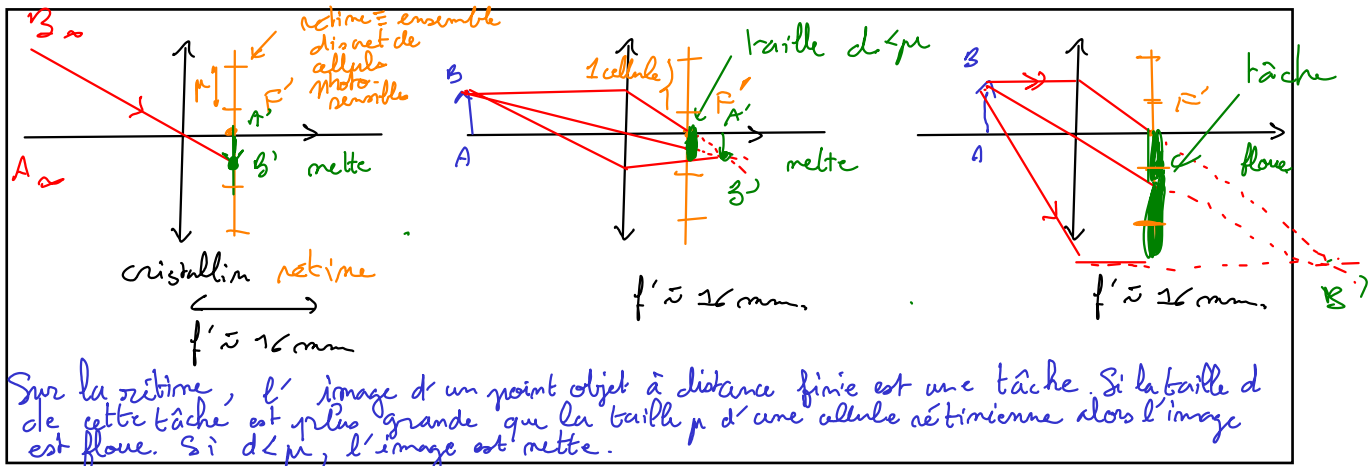 B∞
A∞
rétine ≡ ensemble
discret de
cellules
photo-
sensibles
μ
F'
A'
B'
nette
cristallin rétine
f' ≃ 16 mm
B
A
1 cellule
taille d < μ
F'
A'
B'
nette
f' ≃ 16 mm.
B
A
F'
tâche
C
floue
B'
f' ≃ 16 mm.
Sur la rétine, l'image d'un point objet à distance finie est une tâche. Si la taille d
de cette tâche est plus grande que la taille μ d'une cellule rétinienne alors l'image
est floue. Si d<μ, l'image est nette.